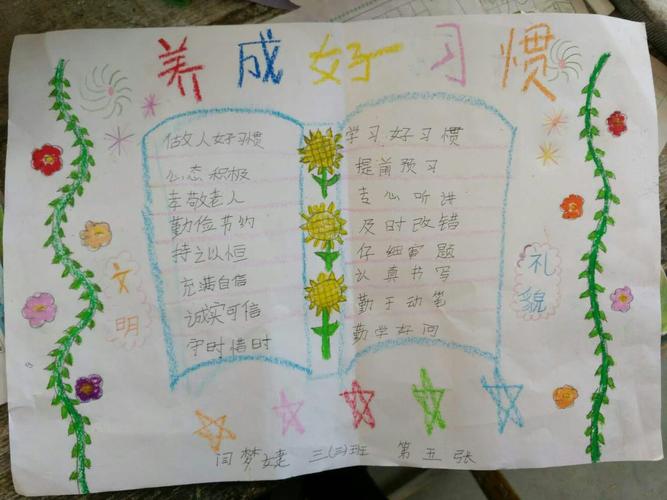 养成好习惯
做人好习惯
心态积极
孝敬老人
勤俭节约
持之以恒
充满自信
诚实可信
守时惜时
学习好习惯
提前预习
专心听讲
及时改错
仔细审题
认真书写
勤于动笔
勤学好问
文明
礼貌
闫梦婕 三(三)班 第五张